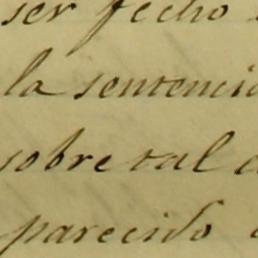 ser fecho
la sentenci
sobre tal
parecido